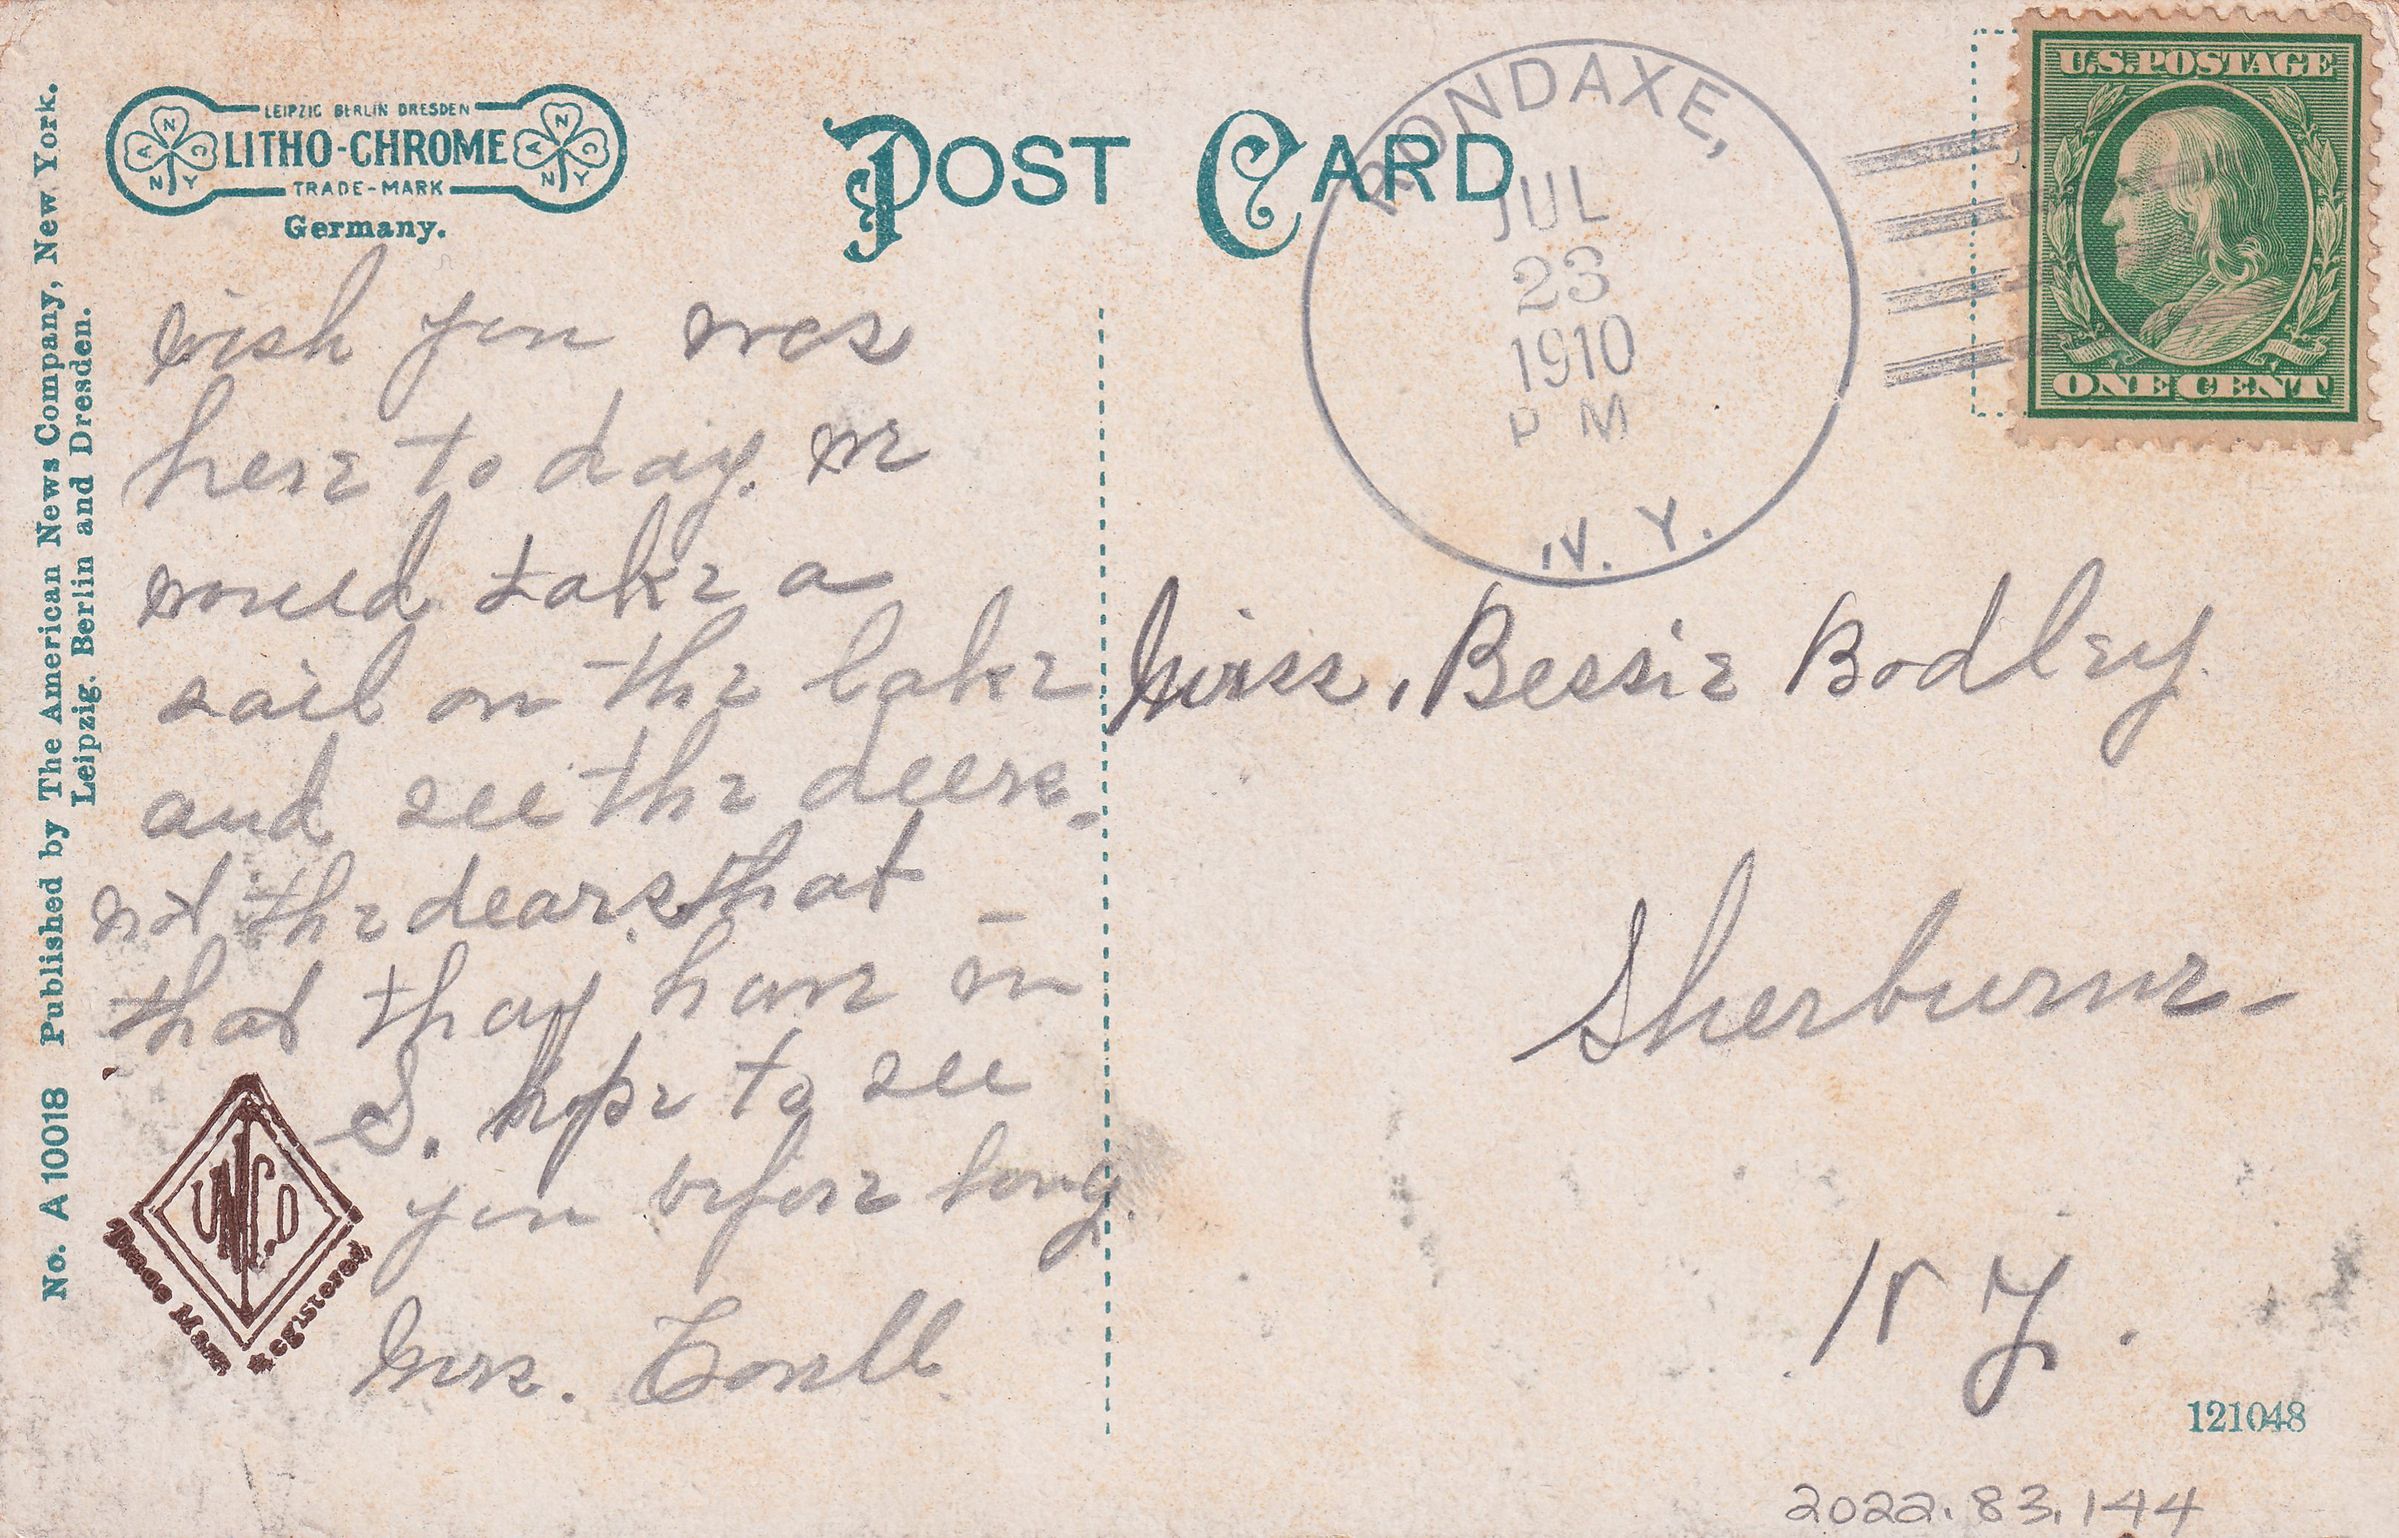 LEIPZIG BERLIN DRESDEN
LITHO-CHROME
TRADE-MARK
Germany.
POST CARD
RONDAXE,
JUL
23
1910
P M
N. Y.
U.S. POSTAGE
ONE CENT
No. A 10018 Published by The American News Company, New York.
Leipzig. Berlin and Dresden.
wish you was
here to day. we
would take a
sail on the lake
and see the deers -
not the dears that
that thay have in
S. hope to see
you before long.
Mrs.
Miss, Bessie Bodley
Sherburne -
N Y.
Trade Mark
Registered
121048
2022.83.144